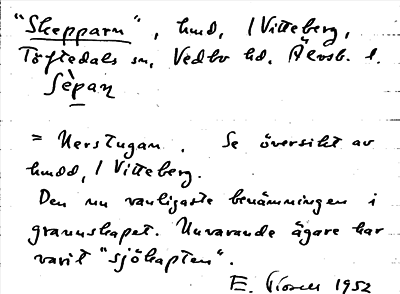 "Skepparn", hmd, 1 Vitteberg,
Töftedals sn, Vedbo hd, Älvsb. l.
Sèpan
= Nerstugan. Se översikt av
hmdd, 1 Vitteberg.
Den nu vanligaste benämningen i
grannskapet. Nuvarande ägare har
varit "sjökapten".
E. 1952